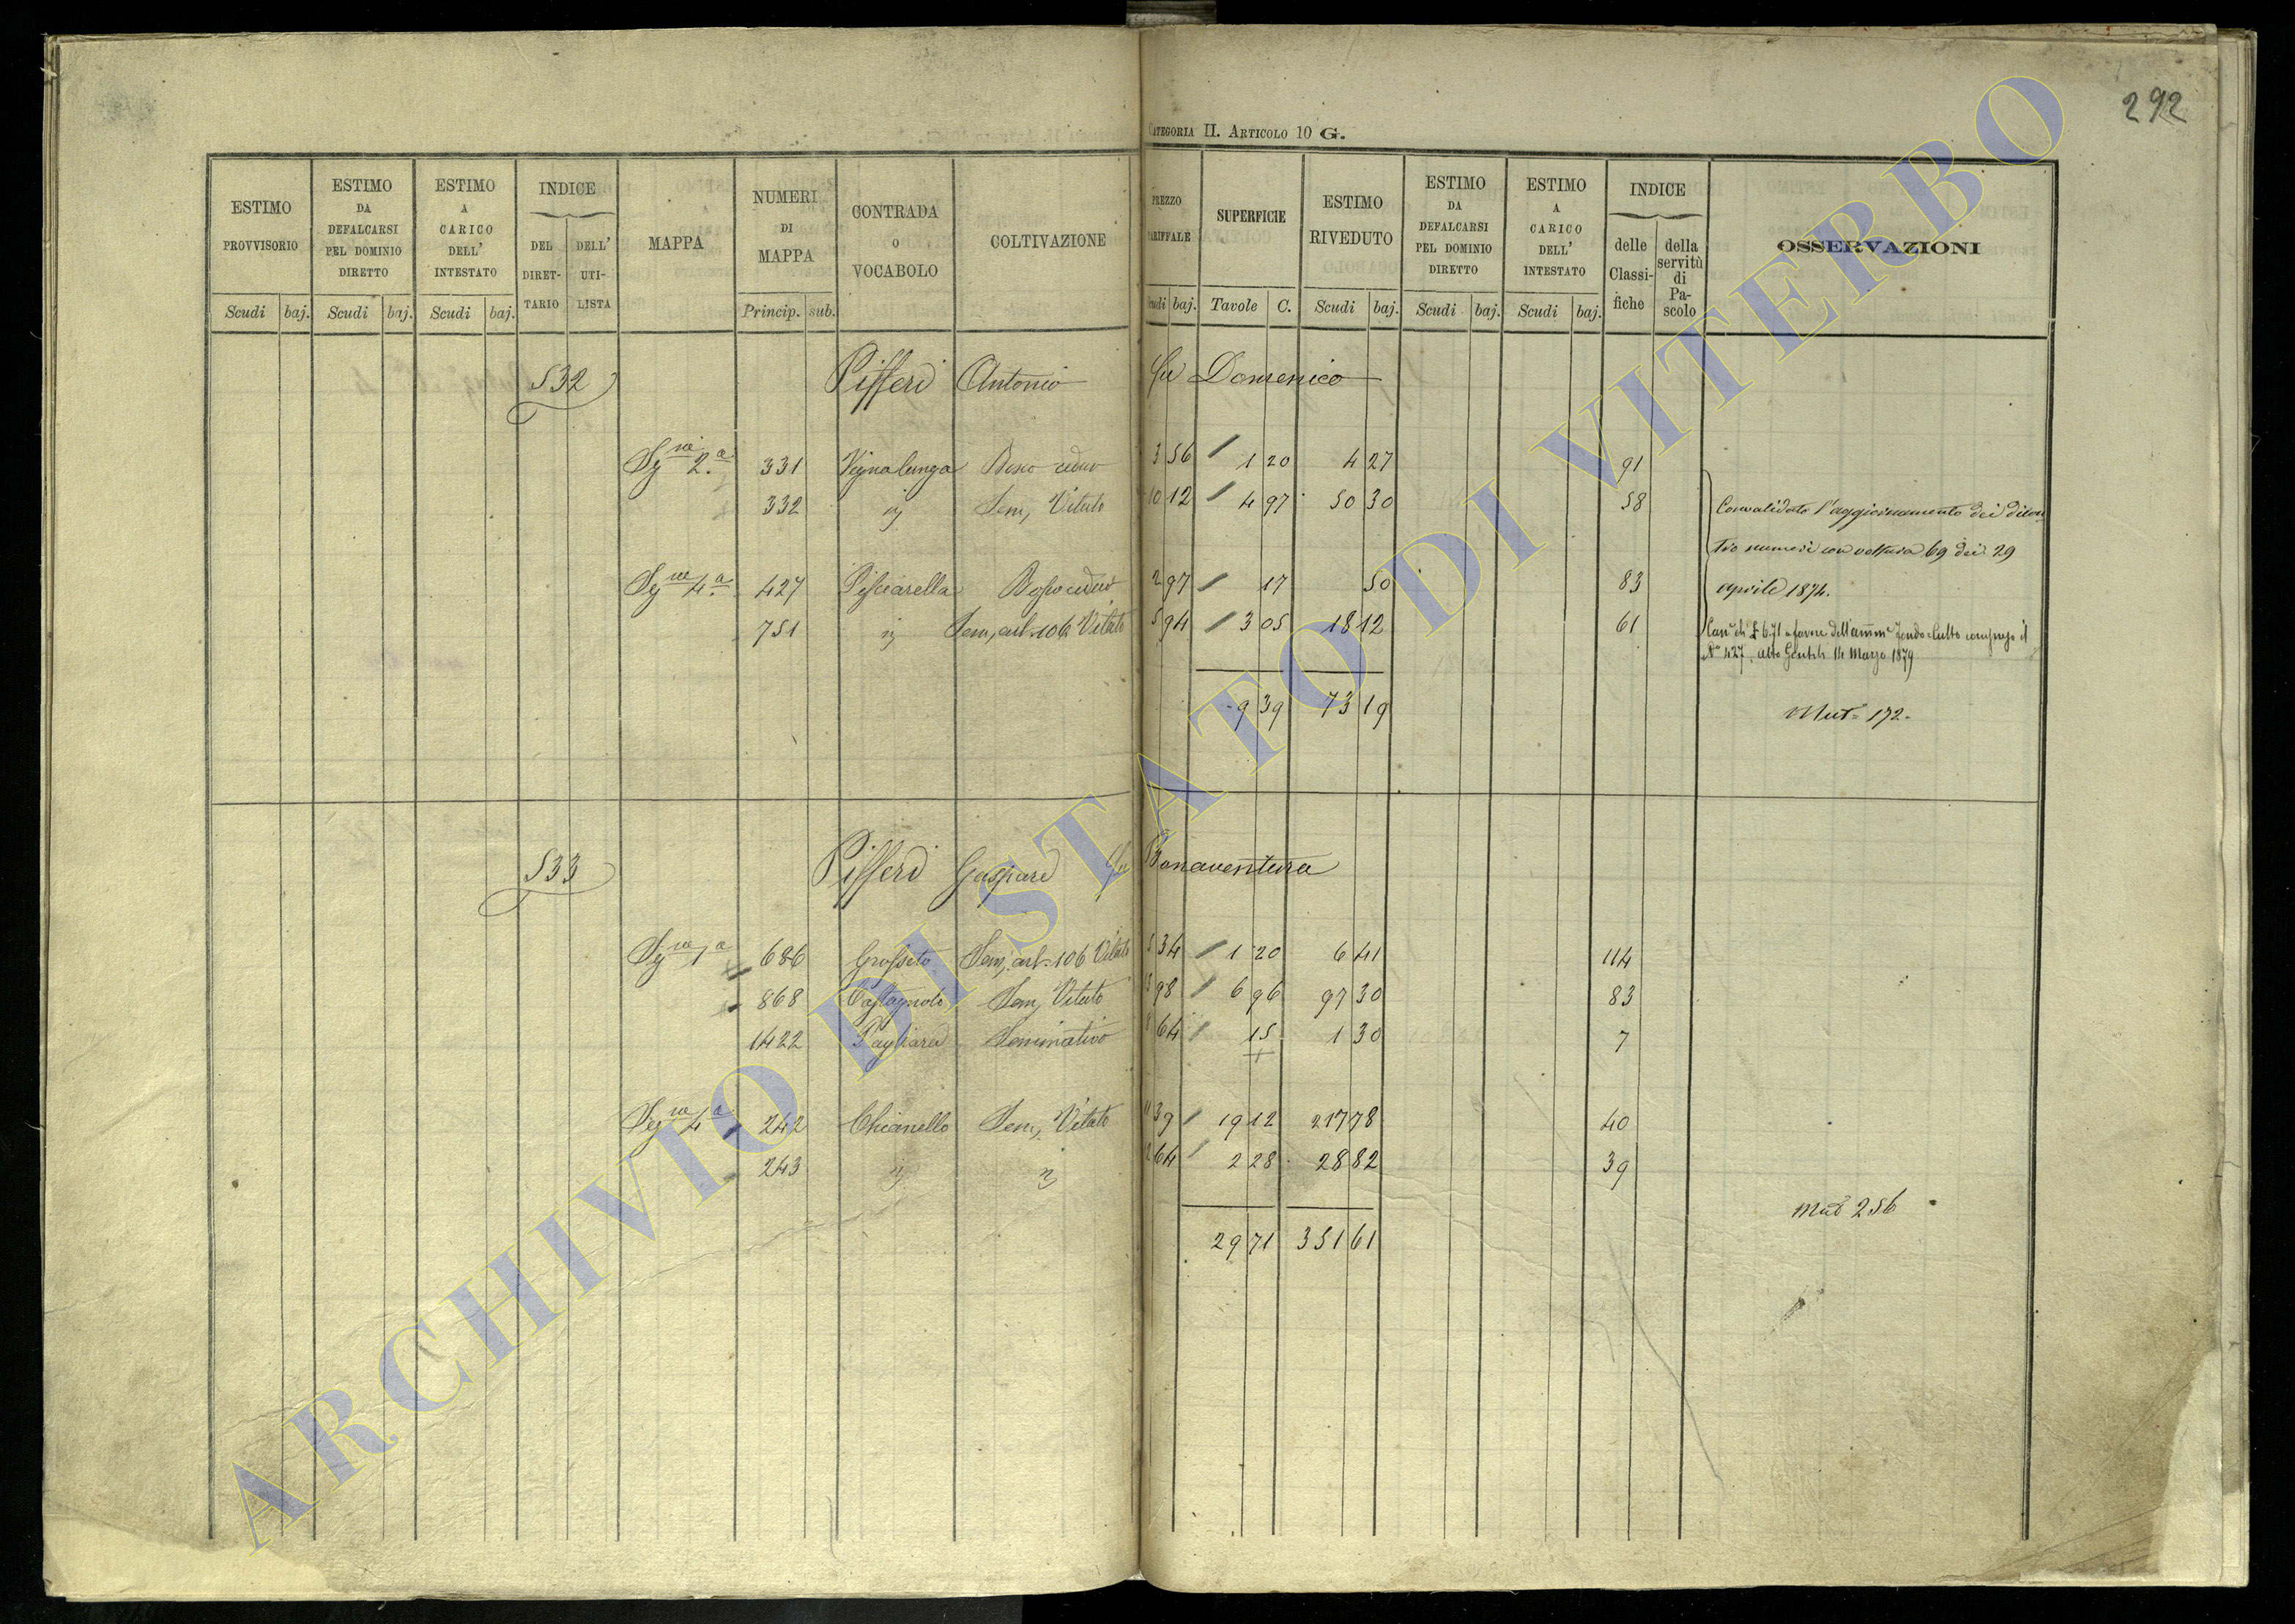 292
CATEGORIA II. ARTICOLO 10 G.
ESTIMO PROVVISORIO
Scudi baj.
ESTIMO DA DEFALCARSI PEL DOMINIO DIRETTO
Scudi baj.
ESTIMO A CARICO DELL' INTESTATO
Scudi baj.
INDICE
DEL DIRET-TARIO
DELL' UTI-LISTA
MAPPA
NUMERI DI MAPPA
Princip. sub.
CONTRADA O VOCABOLO
COLTIVAZIONE
PREZZO TARIFFALE
Scudi baj.
SUPERFICIE
Tavole C.
ESTIMO RIVEDUTO
Scudi baj.
ESTIMO DA DEFALCARSI PEL DOMINIO DIRETTO
Scudi baj.
ESTIMO A CARICO DELL' INTESTATO
Scudi baj.
INDICE
delle Classi-fiche
della servitù di Pa-scolo
OSSERVAZIONI
532 Pifferi Antonio fu Domenico
Sq.ne 2.a 331 Vignalunga Bosco ceduo 3 56 1 20 4 27 91
332 " Sem, Vitato 10 12 4 97 50 30 58
Convalidato l'aggiornamento dei
numeri con voltura 69 dei 29
Sq.ne 4.a 427 Pisciarella Bosco ceduo 2 97 17 50 83
aprile 1874.
751 " Sem, arb. 106 Vitato 5 94 3 05 18 12 61
Can.e di £ 6.71 a favore dell'amm.e Fondo-Culto compreso il
N.o 427, atto Gentili 14 Marzo 1879
9 39 73 19
Mut.e 172.
533 Pifferi Gaspare fu Bonaventura
Sq.ne 1.a 686 Grosseto Sem, arb. 106 Vitato 5 34 1 20 6 41 114
868 Castagnolo Sem, Vitato 13 98 6 96 97 30 83
1422 Pagliara Seminativo 8 64 15 1 30 7
Seg.ne 4.a 242 Chianello Sem, Vitato 11 39 19 12 217 78 40
243 " " 12 64 2 28 28 82 39
Mut 256
29 71 351 61
ARCHIVIO DI STATO DI VITERBO